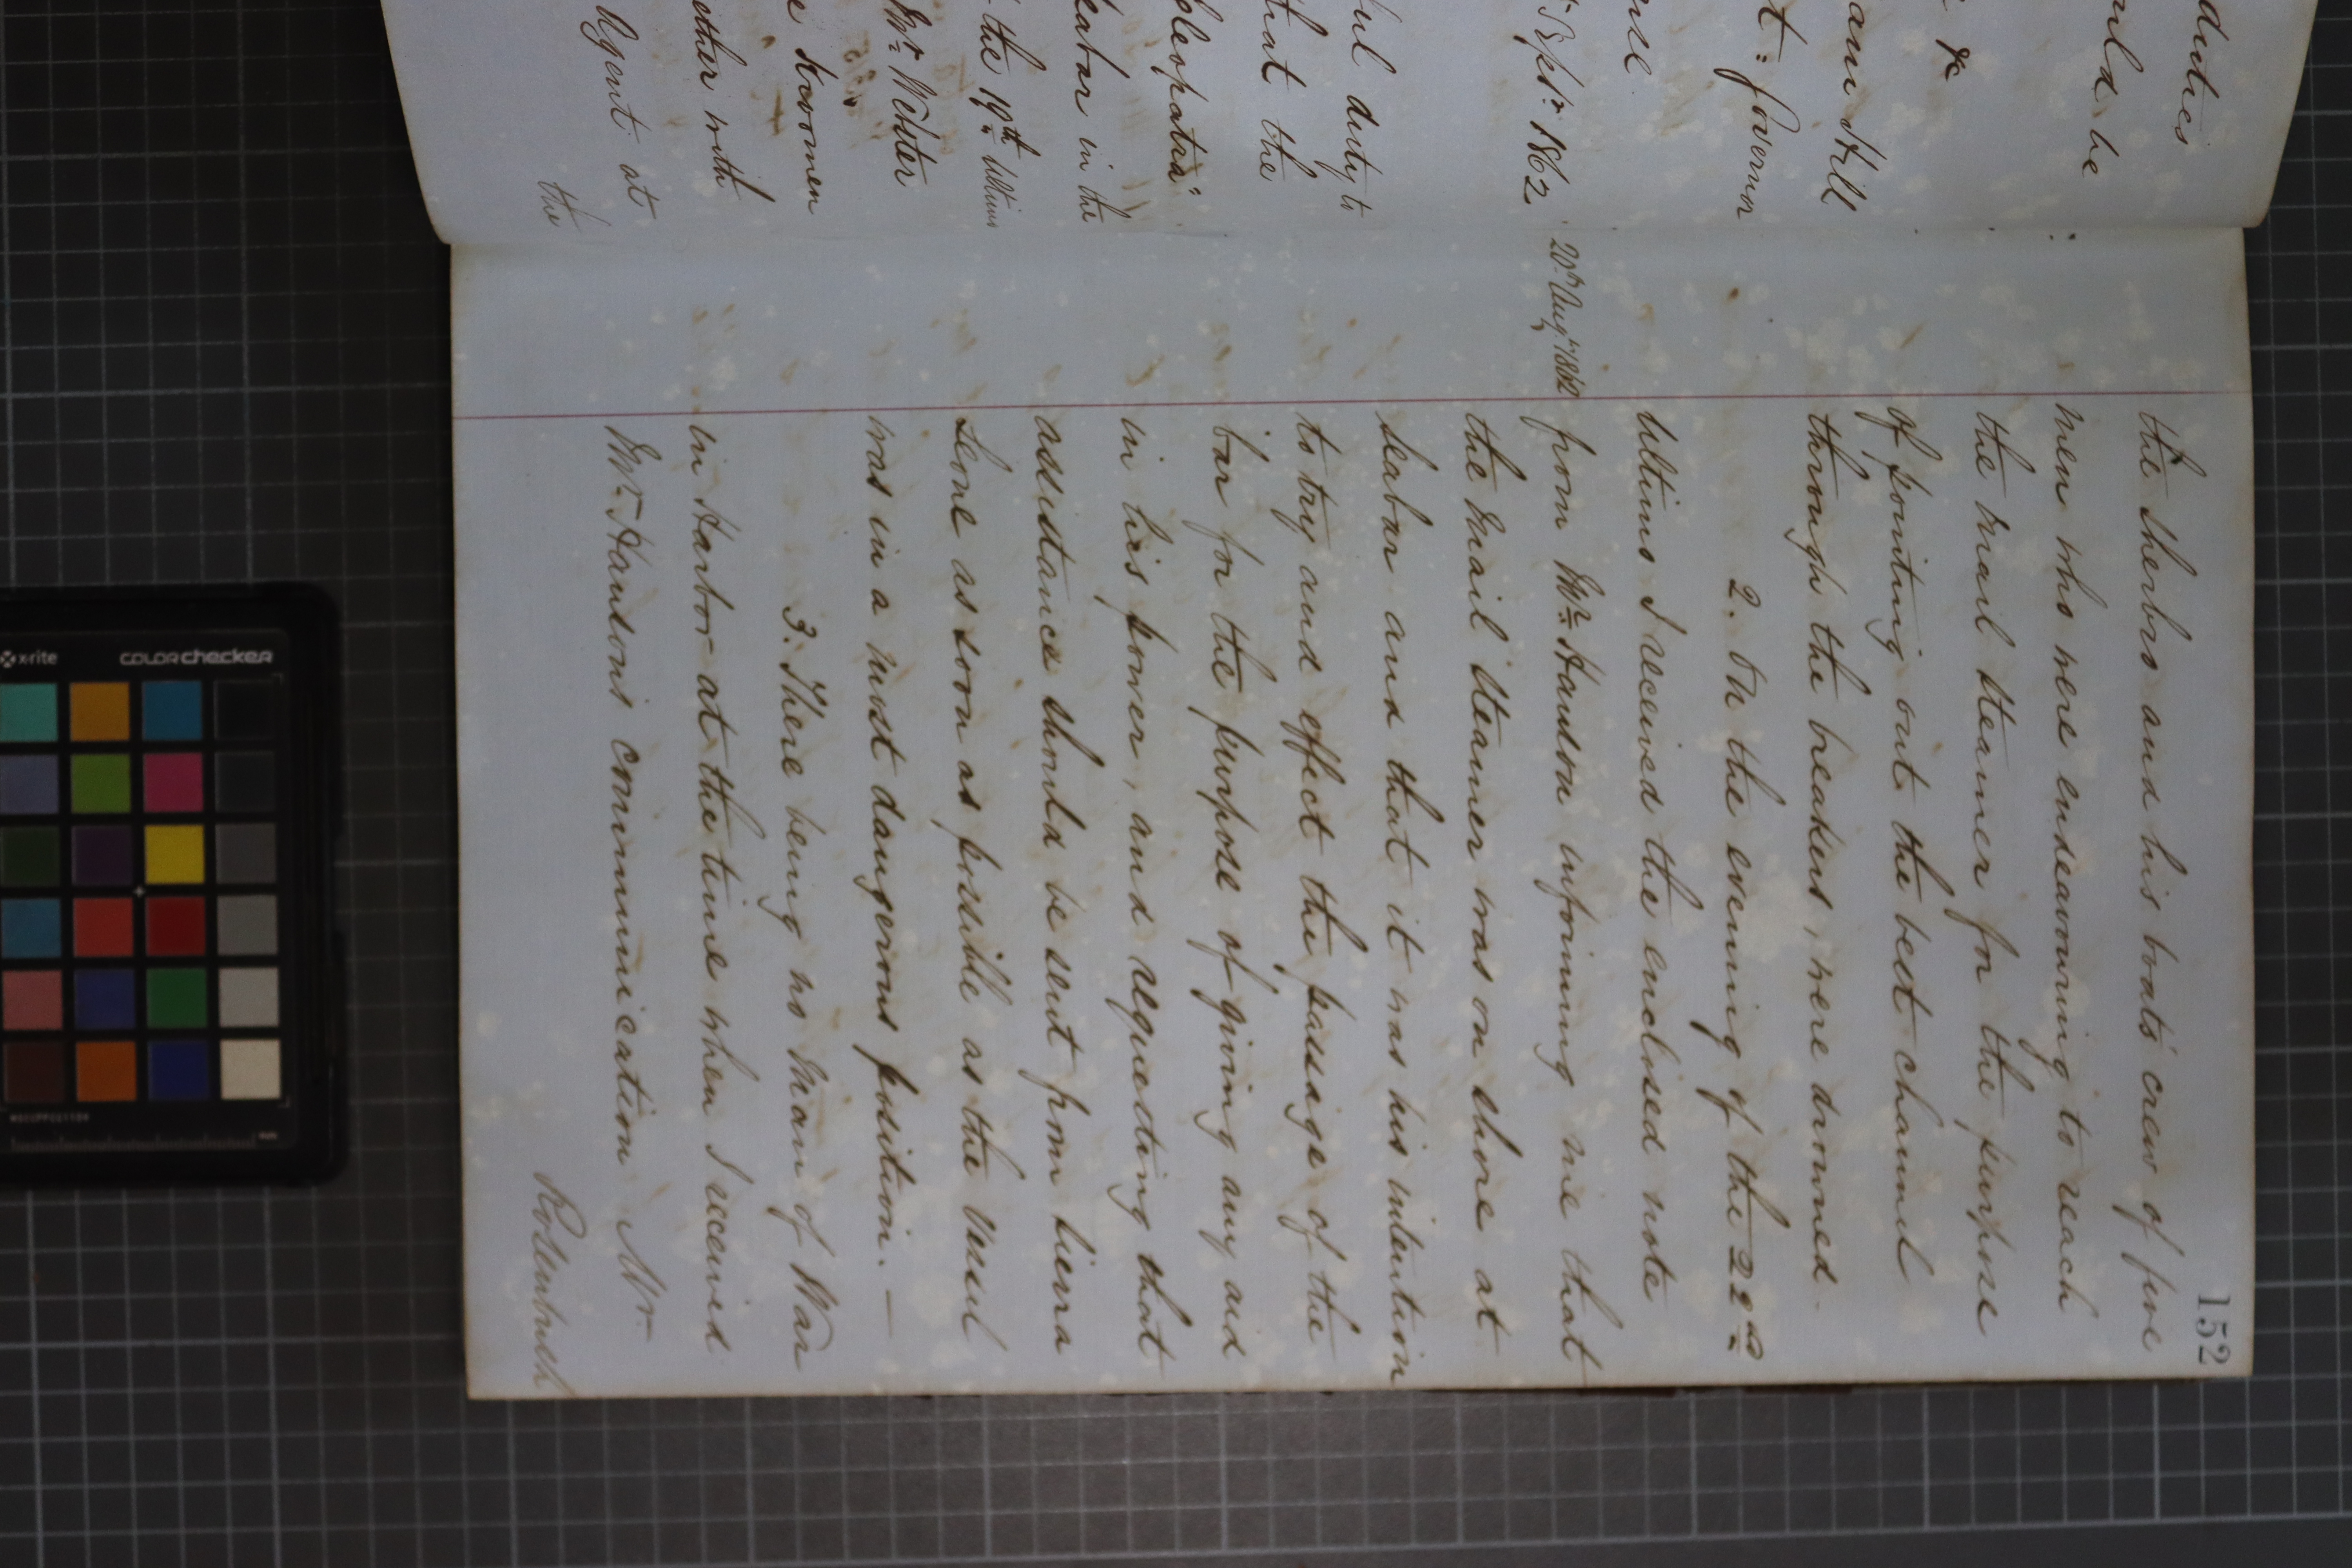 duties
ould be
&c
am Hill
t: Governor
Sept: 1862
ful duty to
that the
Cleopatra"
eabar in the
the 19th Ultimo
Mr Webster
e Kroomen
ether with
Agent at
the
152
the Sherbro and his boats' crew of five
men who were endeavouring to reach
the mail steamer for the purpose
of pointing out the best channel
through the breakers, were drowned.
2. On the evening of the 22nd
Ultimo I received the enclosed note
20th Augt 1862
from Mr. Hanson informing me that
the Mail Steamer was on shore at
Seabar and that it was his intention
to try and effect the passage of the
bar for the purpose of giving any aid
in his power, and requesting that
assistance should be sent from Sierra
Leone as soon as possible as the vessel
was in a most dangerous position. —
3. There being no Man of War
in Harbor at the time when I received
Mr. Hanson's communication Mr.
Rosenbush
x-rite
colorchecker
mm